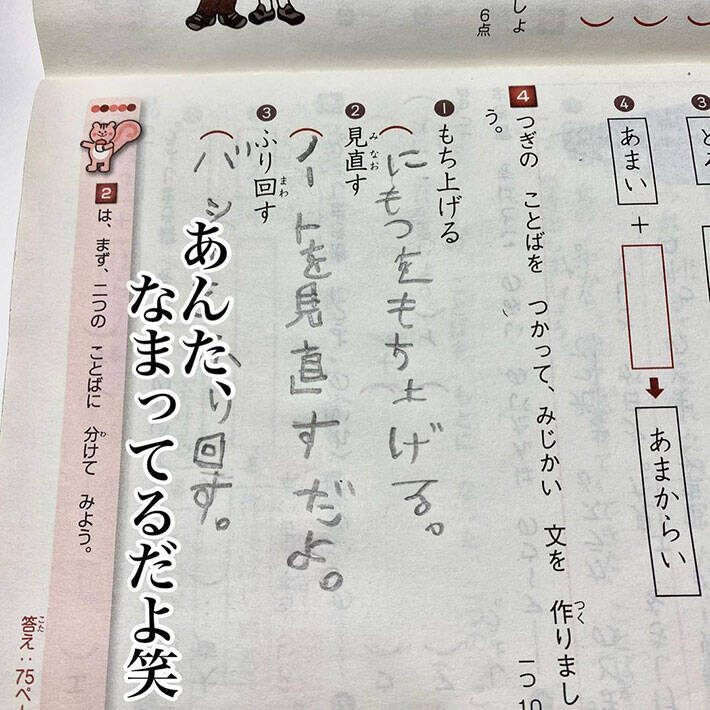 しょ
6点
③
④
あまい
+
あまからい
4 つぎの ことばを つかって、みじかい 文を 作りましょ
う。
一つ10
① もち上げる
にもつをもち上げる。
② 見直す
ノートを見直すだよ。
③ ふり回す
ふり回す。
あんた、
なまってるだよ笑
2 は、まず、二つの ことばに 分けて みよう。
答え:75ペー